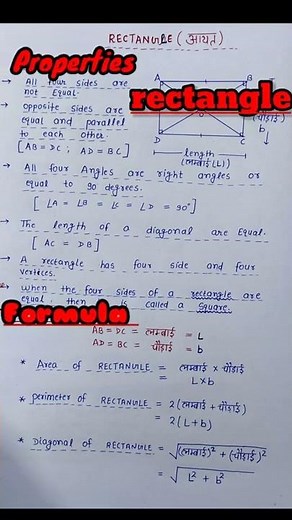 RECTANGLE (आयत)
Properties
rectangle
→ All four sides are
not Equal.
→ opposite sides are
equal and parallel
to each other.
[AB = DC ; AD = BC]
A B
चौड़ाई
b
O
D C
length
(लम्बाई (L))
→ All four Angles are right angles or
equal to 90 degrees.
[ ∠A = ∠B = ∠C = ∠D = 90° ]
→ The length of a diagonal are Equal.
[ AC = DB ]
→ A rectangle has four side and four
vertices.
when the four sides of a rectangle are
equal then is called a Square.
Formula
AB = DC = लम्बाई = L
AD = BC = चौड़ाई = b
* Area of RECTANGLE = लम्बाई × चौड़ाई
= L×b
* perimeter of RECTANGLE = 2(लम्बाई + चौड़ाई)
= 2(L+b)
* Diagonal of RECTANGLE = √(लम्बाई)² + (चौड़ाई)²
= √L² + b²